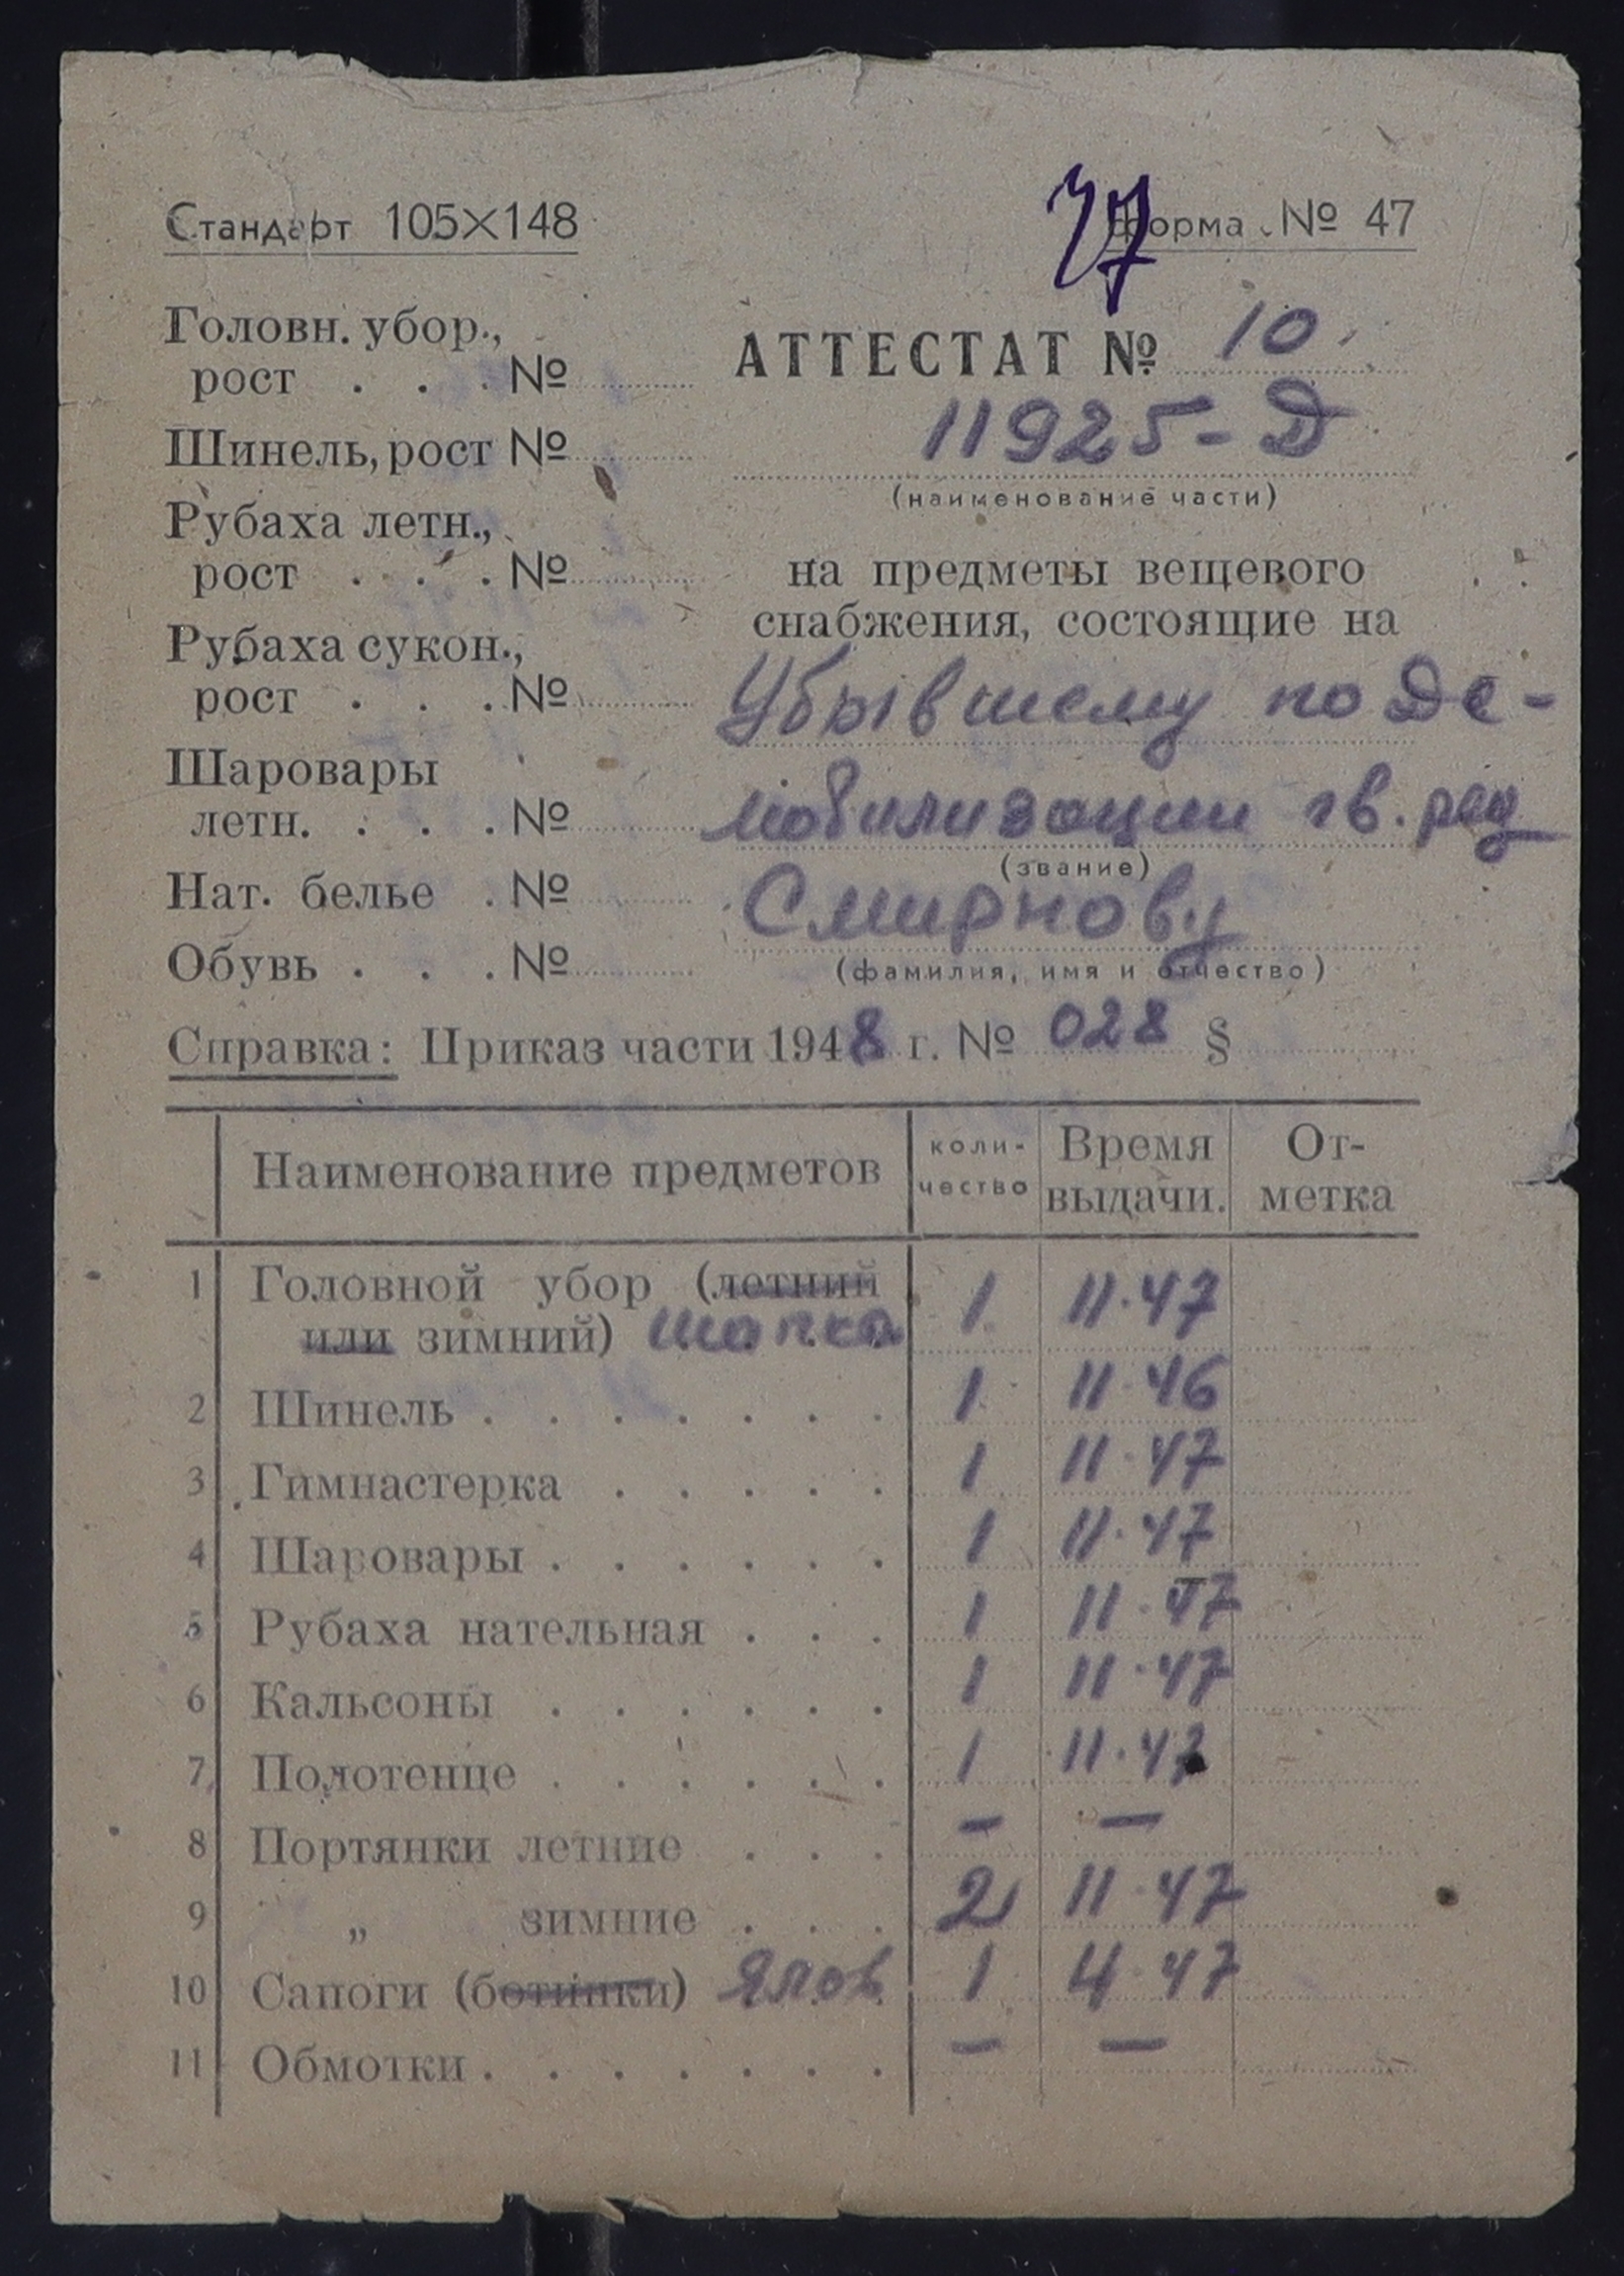 Стандарт 105×148
Форма № 47
Головн. убор.,
рост . . . №
Шинель, рост №
Рубаха летн.,
рост . . . №
Рубаха сукон.,
рост . . . №
Шаровары
летн. . . . №
Нат. белье . №
Обувь . . . №
АТТЕСТАТ № 10
11925-Д
(наименование части)
на предметы вещевого
снабжения, состоящие на
Убывшему по де-
мобилизации гв. ряд
(звание)
Смирнову
(фамилия, имя и отчество)
Справка: Приказ части 1948 г. № 028 §
Наименование предметов коли- Время От-
чество выдачи. метка
1 Головной убор (летний
или зимний) шапка 1 11·47
2 Шинель . . . . . . . 1 11·46
3 Гимнастерка . . . . . 1 11·47
4 Шаровары . . . . . . 1 11·47
5 Рубаха нательная . . . 1 11·47
6 Кальсоны . . . . . . 1 11·47
7 Полотенце . . . . . . 1 11·47
8 Портянки летние . . . — —
9 „ зимние . . . 2 11·47
10 Сапоги (ботинки) Ялов 1 4·47
11 Обмотки . . . . . . . — —